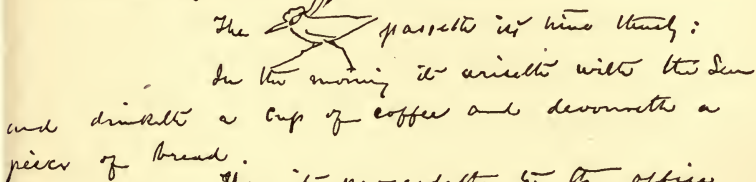 The passeth its time thusly:
In the morning it ariseth with the Sun
and drinketh a cup of coffee and devoureth a
piece of bread.
it proceedeth to the office